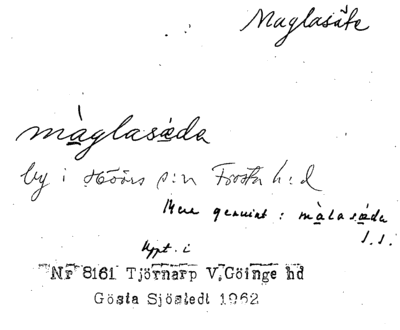 Maglasäte
màglasæda
by i Höörs s:n Frosta h:d
Mera genuint: màlasæda
s.s.
Uppt. i
Nr 8161 Tjörnarp V.Göinge hd
Gösta Sjöstedt 1962